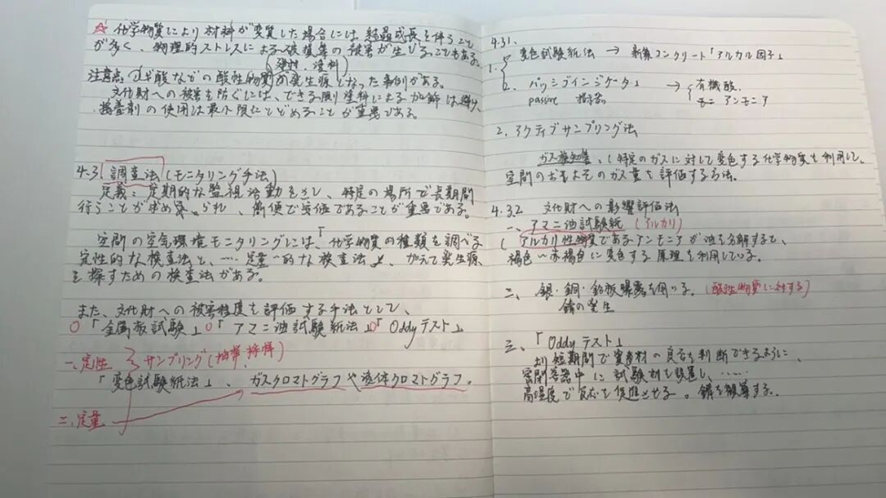 ☆ 化学物質により材料が変質した場合には、結晶成長を伴うこと
が多く、物理的ストレスによる破損等の被害が生じることもある。
(染料、塗料)
注意点、ギ酸などの酸性物質の発生源となった事例がある。
文化財への被害を防ぐには、できる限り塗料による は避け、
接着剤の使用は最小限にとどめることが重要である。
4.3. 調査法 (モニタリング手法)
定義:定期的な監視活動をさし、特定の場所で長期間
行うことが求め られ、簡便で安価であることが重要である。
空間の空気環境モニタリングには、「化学物質の種類を調べる
定性的な検査法と、…… 定量 的な検査法 、 発生源
を探すための検査法がある。
また、文化財への被害程度を評価する手法として、
○「金属板試験」○「アマニ油試験紙法」○「Oddyテスト」
一、定性 サンプリング(
「変色試験紙法」、ガスクロマトグラフや液体クロマトグラフ。
二、定量
4.31.
1. 変色試験紙法 → 新築コンクリート「アルカリ因子」
2. パッシブインジケータ → 有機酸
passive 指示 アンモニア
2. アクティブサンプリング法
ガス検知管、(特定のガスに対して変色する化学物質を利用して、
空間のおおよそのガス量を評価する方法。
4.32 文化財への影響評価法
一、アマニ油試験紙 (アルカリ)
( アルカリ性物質であるアンモニアが油を分解すると、
褐色〜赤褐色に変色する原理を利用している。
二、銀・銅・鉛板曝露を用いる。(酸性物質に対する)
錆の発生
三、「Oddyテスト」
より短期間で 素材の良否を判断できるように、
密閉容器中に試験材を設置し、……
高湿度で反応を促進させる。錆を観察する。